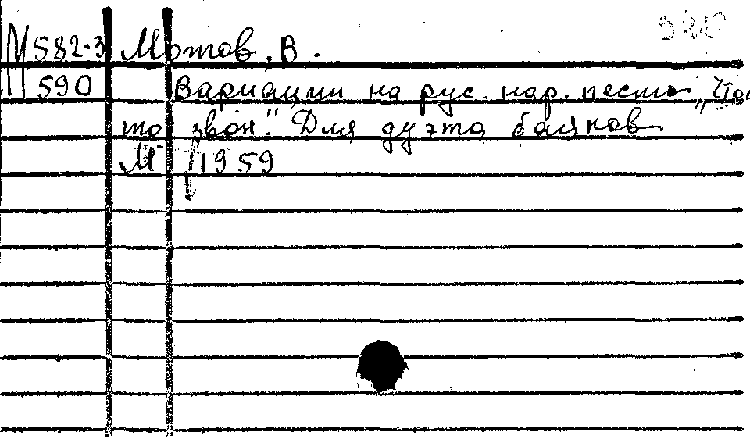 М582-3 Мотов, В.
590 Вариации на рус. нар. песню „Что
то звон." Для дуэта баянов
М 1959